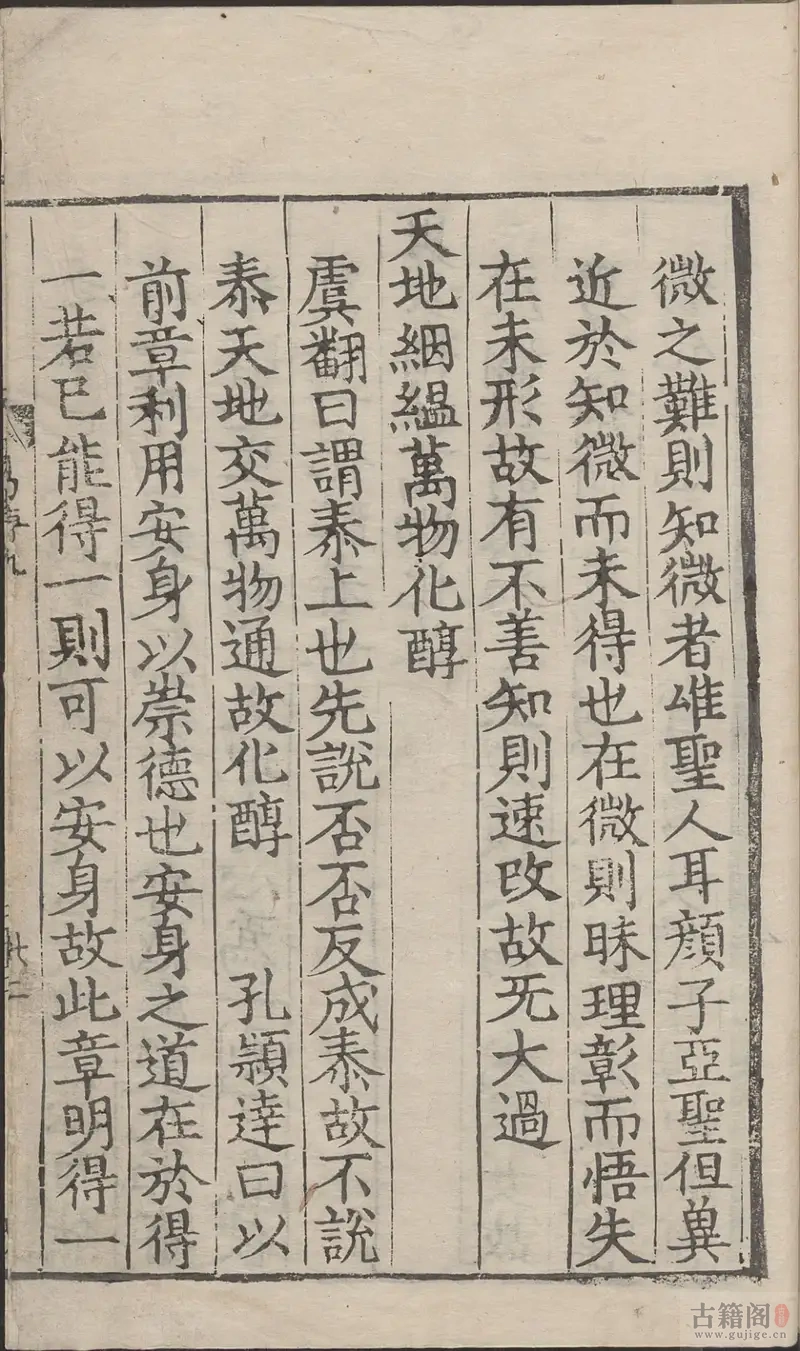 微之難則知微者唯聖人耳顔子亞聖但兾
近於知微而未得也在微則昧理彰而悟失
在未形故有不善知則速改故旡大過
天地絪緼萬物化醇
虞翻曰謂泰上也先說否否反成泰故不說
泰天地交萬物通故化醇 孔頴逹曰以
前章利用安身以崇德也安身之道在於得
一若已能得一則可以安身故此章明得一
古籍阁
www.gujige.cn